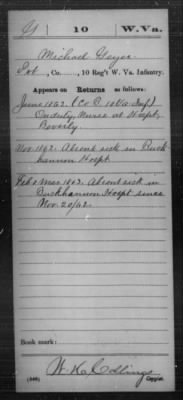 G 10 W.Va.
Michael Geyer
Pvt, Co. , 10 Reg't W. Va. Infantry.
Appears on Returns as follows:
June 1862 (Co D 10 Va Inf)
Orderly Nurse at Hospt,
Beverly.
Nov. 1862. Absent sick in Buck-
hannon Hospt
Feb & Mar. 1863. Absent sick in
Buckhannon Hospt since
Nov. 20/62.
Book mark:
W. H. Collings
(546) Copyist.